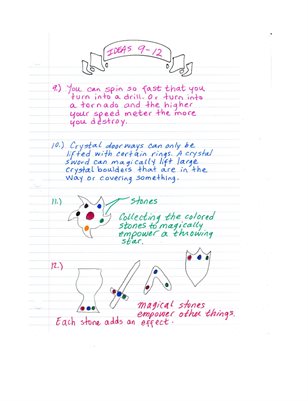 IDEAS 9-12
9.) You can spin so fast that you
turn into a drill. Or turn into
a tornado and the higher
your speed meter the more
you destroy.
10.) Crystal doorways can only be
lifted with certain rings. A crystal
sword can magically lift large
crystal boulders that are in the
way or covering something.
11.)
stones
Collecting the colored
stones to magically
empower a throwing
star.
12.)
magical stones
empower other things.
Each stone adds an effect.